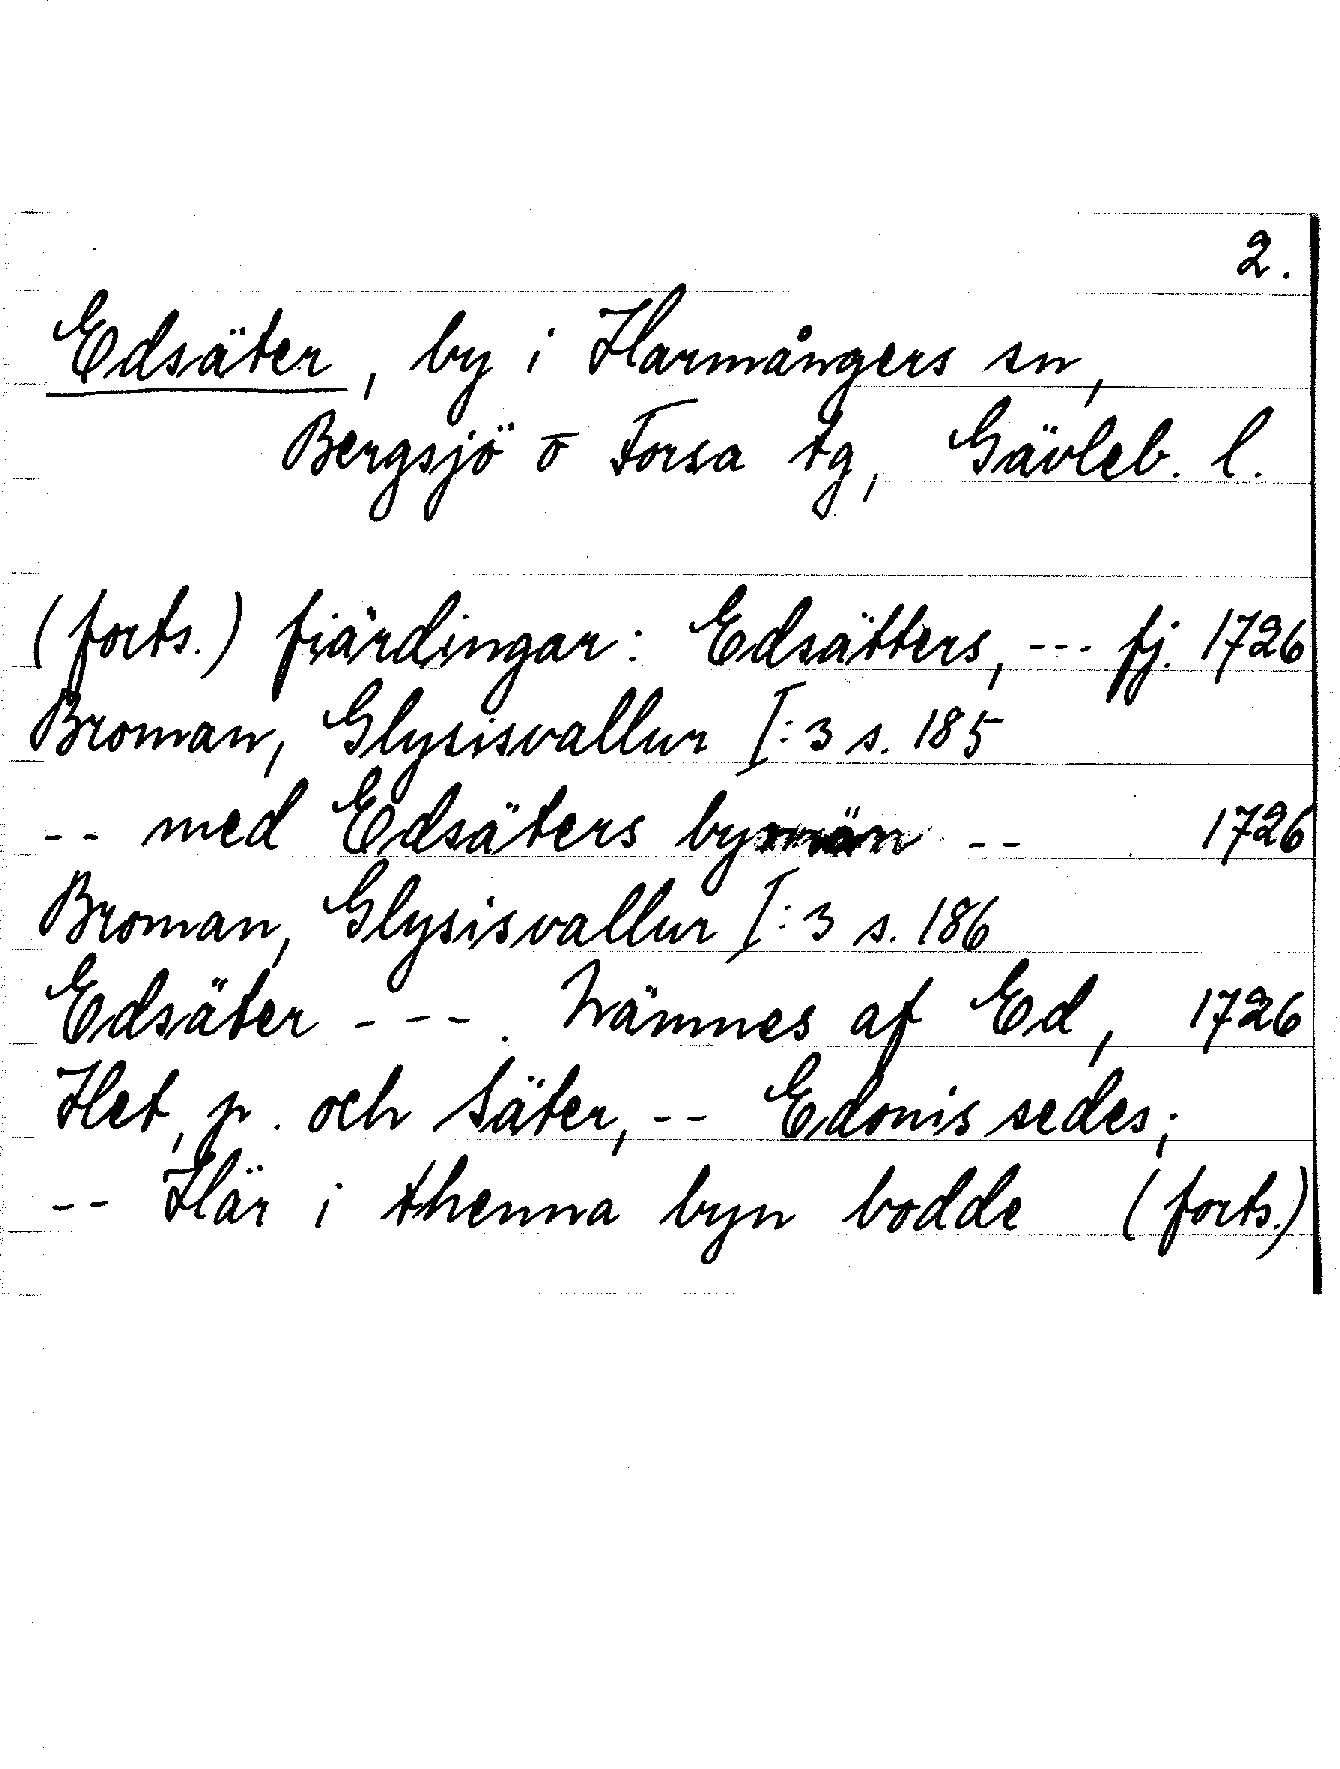 2.
Edsäter, by i Harmångers sn,
Bergsjö o Forsa tg, Gävleb. l.
(forts.) fiärdingar: Edsätters, --- fj. 1726
Broman, Glysisvallur I:3 s. 185
-- med Edsäters bymän -- 1726
Broman, Glysisvallur I:3 s. 186
Edsäter ---. Nämnes af Ed, 1726
Het, p. och Säter, -- Edonis sedes;
-- Här i thenna byn bodde (forts.)